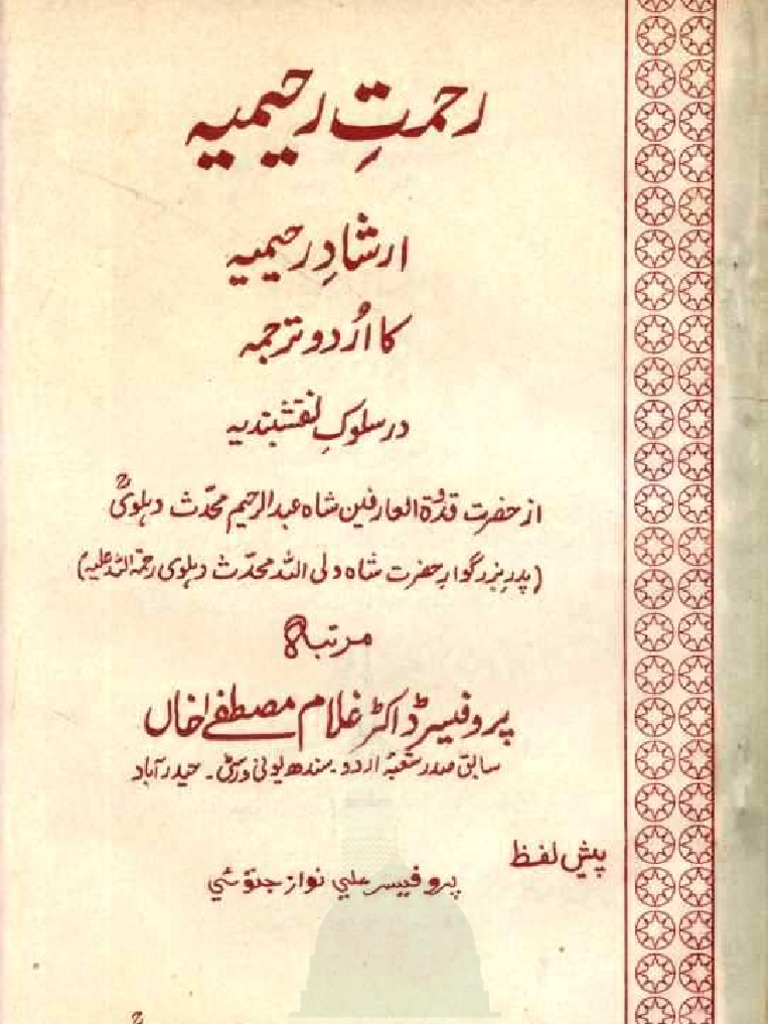 رحمتِ رحیمیہ
ارشادِ رحیمیہ
کا اُردو ترجمہ
در سلوکِ نقشبندیہ
از حضرت قدوۃ العارفین شاہ عبدالرحیم محدّث دہلویؒ
(پدرِ بزرگوار حضرت شاہ ولی اللہ محدّث دہلوی رحمۃ اللہ علیہ)
مرتبہ
پروفیسر ڈاکٹر غلام مصطفےٰ خاں
سابق صدر شعبۂ اردو۔ سندھ یونی ورسٹی۔ حیدرآباد
پیش لفظ
پروفیسر علي نواز جتوئي